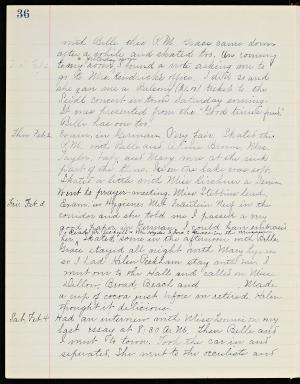 36
with Belle this P.M. Grace came down
after a while and skated too. On coming
away down, I found a note asking me to
go to Miss Kendrick's office. I did so and
she gave me a Balcony (A.20) ticket to the
Seidl concert in town Saturday evening.
It was presented from the "Good times fund."
Belle has one too.
Thu. Feb. 2. Exam. in German. Very fair. Skated this
P.M. with Belle and
Taylor, Katy and Mary were at the
part of the
Skated a little with Miss
Went to prayer-meeting. Miss Stebbins lead.
Fri. Feb. 3. Exam. in Hygiene. Met Fräulein Neef in the
corridor and she told me I passed a very
good paper in German. I could have embraced
her. Skated some in the afternoon with Belle.
Grace stayed all night with Mary Lyon
so I had Helen Peckham stay with me. I
went over to the Hall and called on Miss
Dillow, Broad, Beach and Made
a cup of cocoa just before we retired. Helen
thought it delicious.
Sat. Feb. 4. Had an interview with Miss on my
last essay at 8:30 A.M. Then Belle and
I went to town. Took the car in and
separated. She went to the oculists and